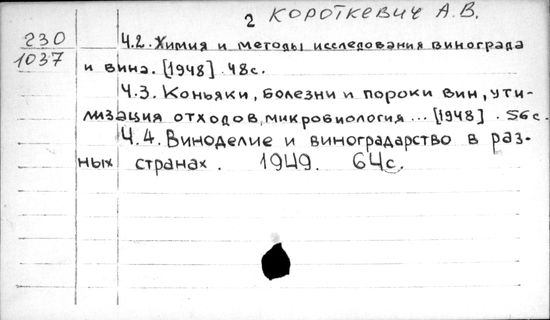 2 КОРОТКЕВИЧ А.В.
230
1037
Ч.2. Химия и методы исследования винограда
и вина. [1948]. 48с.
Ч.3. Коньяки, болезни и пороки вин, ути-
лизация отходов, микробиология... [1948]. 56с.
Ч.4. Виноделие и виноградарство в раз-
ных странах. 1949. 64с.